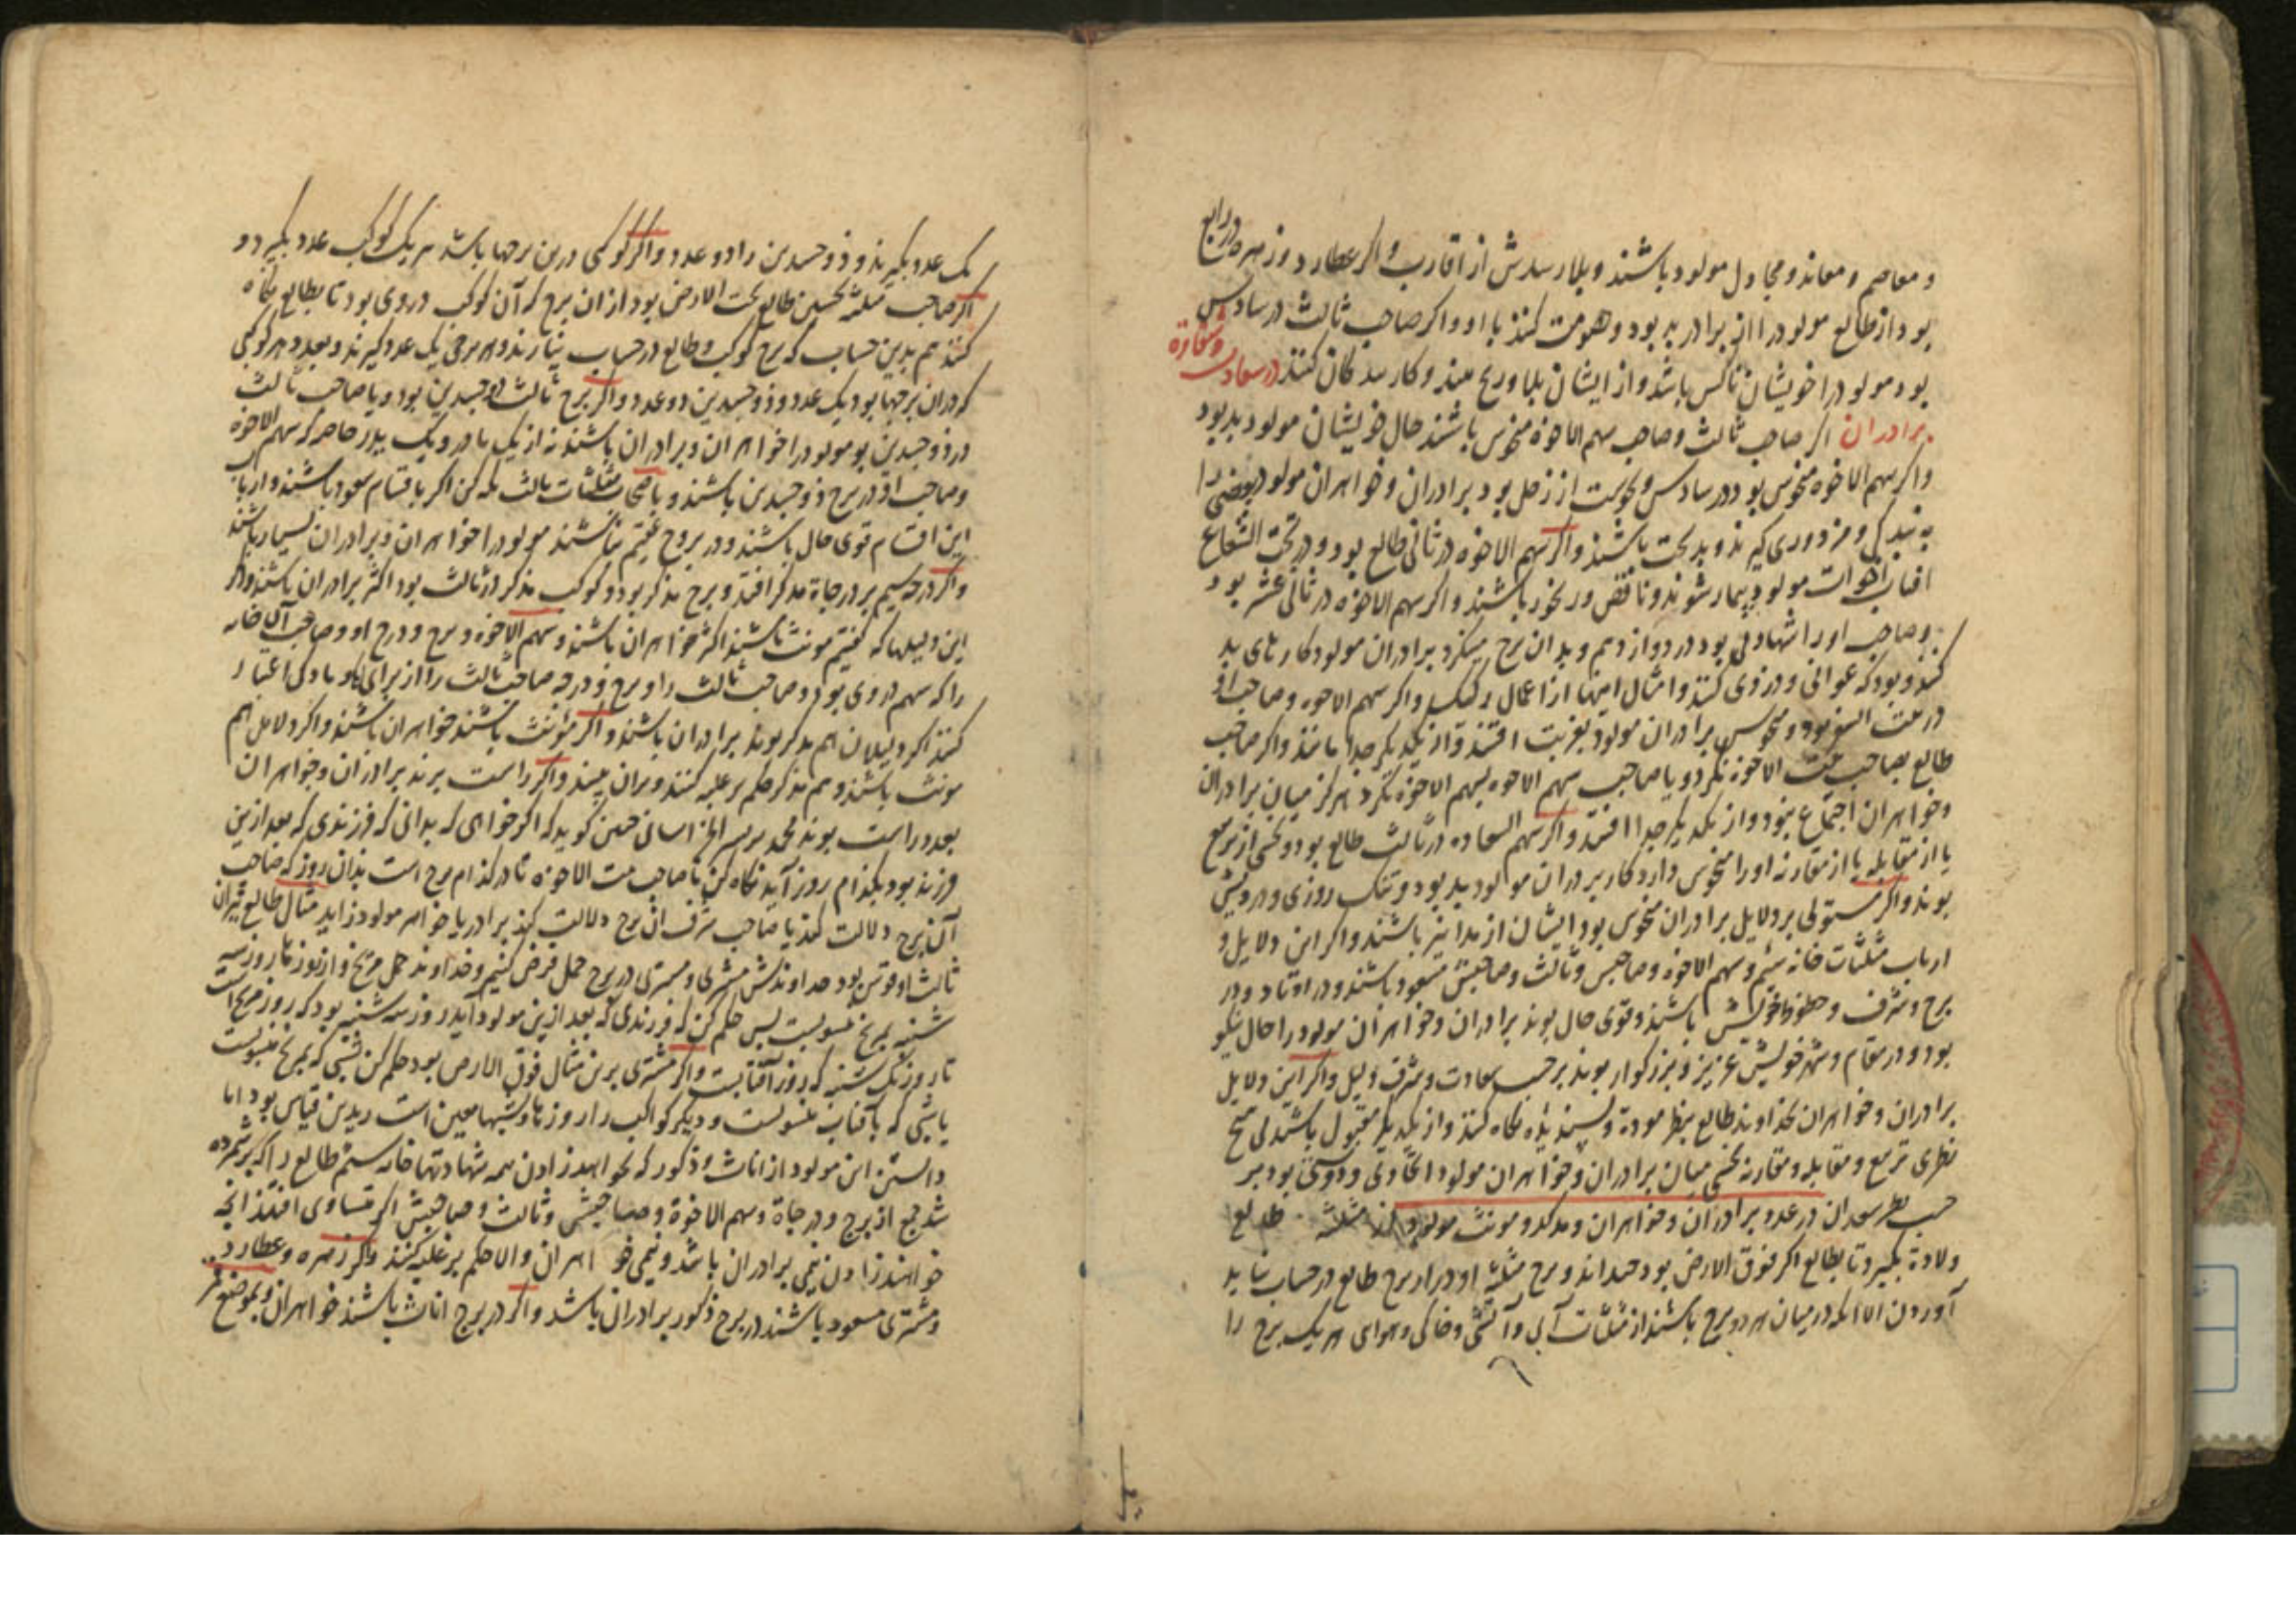 و معاصم و معاند و مجادل مولود باشند و بلا رسدش از اقارب و اکر عطارد و زهره در رابع
بود از طالع مولود را از برادر بد بود و خصومت کنند با او و اکر صاحب ثالث در سادس
بود مولود را خویشان ناکس باشد و از ایشان بلا و رنج بیند و کار بندکان کنند در سعادت و شقاوة
برادران اکر صاحب ثالث و صاحب سهم الاخوة منحوس باشند حال خویشان مولود بد بود
و اکر سهم الاخوه منحوس بود در سادس و نحوست از زحل بود برادران و خواهران مولود بعضی را
به بندکی و مزدوری کیرند و بدبخت باشند و اکر سهم الاخوه در ثانی طالع بود و در تحت الشعاع
افتاب اخوات مولود بیمار شوند و ناقص و رنجور باشند و اکر سهم الاخوه در ثانی عشر بود
و صاحب او را شهادتی بود در دوازدهم و بدان برج مینکرد برادران مولود کارهای بد
کنند و بود که عوانی و دزدی کنند و امثال اینها از اعمال و اکر سهم الاخوه و صاحب او
در بیت السفر بود و منحوس برادران مولود بغربت افتند و از یکدیکر جدا مانند و اکر صاحب
طالع بصاحب بیت الاخوة ننکرد و یا صاحب سهم الاخوه بسهم الاخوة ننکرد هرکز میان برادران
و خواهران اجتماع نبود و از یکدیکر جدا افتند و اکر سهم السعاده در ثالث طالع بود و نحسی از تربیع
یا از مقابله یا از مقارنه او را منحوس دارد کار برادران مولود بد بود و تنک روزی و درویش
بوند و اکر مستولی بر دلایل برادران منحوس بود ایشان از بد نیز باشند و اکر این دلایل و
ارباب مثلثات خانه سیم و سهم الاخوه و صاحبش و ثالث و صاحبش مسعود باشند و در اوتاد و در
برج و شرف و حظوظ خویش باشند و قوی حال بوند برادران و خواهران مولود را حال نیکو
بود و در مقام و شهر خویش عزیز و بزرکوار بوند بر حسب سعادت و شرف دلیل و اکر این دلایل
برادران و خواهران بخداوند طالع بنظر مودة و پسندیده نکاه کنند و از یکدیکر مقبول باشند بی هیچ
نظری تربیع و مقابله و مقارنه نحسی میان برادران و خواهران مولود اتحادی و دوستی بود بر
حسب نظر سعدان در عدد برادران و خواهران و مذکر و مونث مولود از مثلثه طالع
ولادة بکیرد تا بطالع اکر فوق الارض بود و برج مثلثه او در او برج طالع در حساب نباید
آوردن الا انکه در میان هر دو برج باشند از مثلثات آبی و آتشی و خاکی و هوای هر یک برج را
یک عدد بکیرند و ذو جسدین را دو عدد و اکر کوکبی درین برجها باشد هر یک کوکب عدد بکیرد و
اکر صاحب مثلثه نخستین طالع تحت الارض بود از ان برج که آن کوکب در وی بود تا بطالع نکاه
کنند هم بدین حساب که برج کوکب و طالع در حساب نیارند و هر برجی یک عدد کیرند و بعد و هر کوکبی
که در ان برجها بود یک عدد و ذو جسدین دو عدد و اکر برج ثالث ذو جسدین بود و یا صاحب ثالث
در ذو جسدین بود مولود را خواهران و برادران باشند نه از یک مادر و یک پدر خاصه که سهم الاخوه
و صاحب او در برج ذو جسدین باشند و یا اصحاب مثلثات ثالث بلکن اکر با قسام سعود باشند و ارباب
این اقسام قوی حال باشند و در بروج عقیم نباشند مولود را خواهران و برادران بسیار باشند
و اکر درجه سیم بر درجاة مذکر افتد و برج مذکر بود و کوکب مذکر در ثالث بود اکثر برادران باشند و اکر
این دلیلها که کفتیم مونث باشند اکثر خواهران باشند و سهم الاخوه و برج و درج او و صاحب آن خانه
را که سهم در وی بود و صاحب ثالث را و برج و درجه صاحب ثالث را از برای نر و مادکی اعتبار
کنند اکر دلیلان هم مذکر بوند برادران باشند و اکر مؤنث باشند خواهران باشند و اکر دلایل هم
مونث باشند و هم مذکر حکم بر غلبه کنند و بران بیند و اکر راست برند برادران و خواهران
بعدد راست بوند محمد بن الخراسانی چنین کوید که اکر خواهی که بدانی که فرزندی که بعد ازین
فرزند بود بکدام روز آید نکاه کن تا صاحب بیت الاخوة تا در کدام برج است بدان روز که صاحب
آن برج دلالت کند یا صاحب شرف ان برج دلالت کند برادر یا خواهر مولود زاید مثال طالع میزان
ثالث او قوس بود خداوندش مشتری و مشتری در برج حمل فرض کنیم و خداوند حمل مریخ و از روزها روز سه
شنبه بمریخ منسوبست پس حکم کن که فرزندی که بعد ازین مولود آید روز سه شنبه بود که روز مریخ است
تا روز یکشنبه که روز آفتابست و اکر مشتری برین مثال فوق الارض بود حکم کن شبی که بمریخ منسوبست
یا شبی که بآفتاب منسوبست و دیکر کواکب را روزها و شبها معین است و بدین قیاس بود اما
دانستن این مولود از اناث و ذکور که بخواهد زادن همه شهادتها خانه سیم طالع را که بر شمرده
شد جمع از برج و درجاة و سهم الاخوة و صاحبش و ثالث و صاحبش اکر متساوی افتند انچه
خواهند زادن نیمی برادران باشد و نیمی خواهران و الا حکم بر غلبه کنند و اکر زهره و عطارد
و مشتری مسعود باشند در برج ذکور برادران باشد و اکر در برج اناث باشند خواهران و بموضع قمر